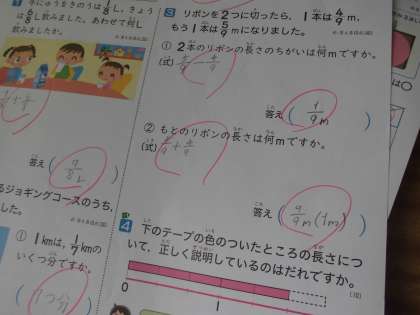 牛にゅうをきのうは1/8L、きょう
は6/8L飲みました。あわせて何L
飲みましたか。
答え
7/8L
るジョギングコースのうち、
した。
① 1kmは、1/7kmの
いくつ分ですか。
7つ分
3 リボンを2つに切ったら、1本は4/9m、
もう1本は5/9mになりました。
① 2本のリボンの長さのちがいは何mですか。
(式) 5/9-4/9
答え ( 1/9m )
② もとのリボンの長さは何mですか。
(式) 5/9+4/9
答え ( 9/9m(1m) )
4 下のテープの色のついたところの長さにつ
いて、正しく説明しているのはだれですか。
(10)
0 1